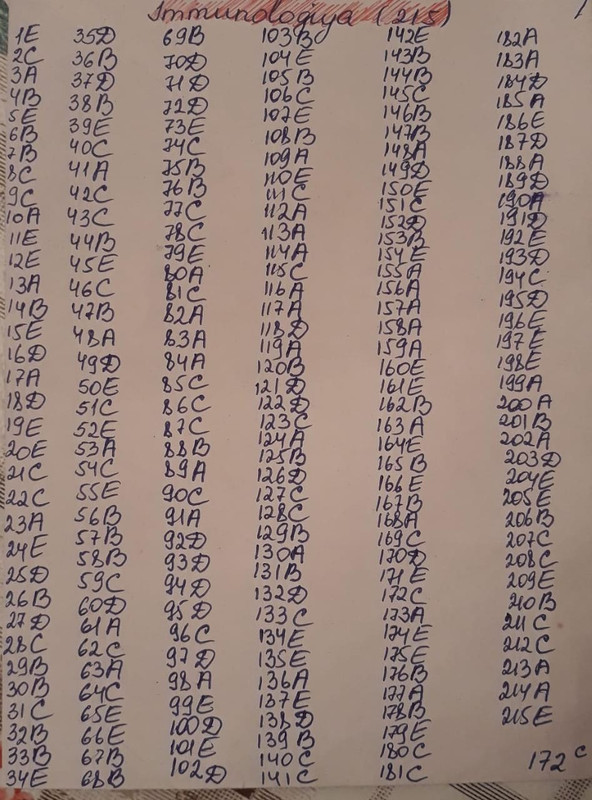 Immunologija (215)
1
1E
2C
3A
4B
5E
6B
7B
8C
9C
10A
11E
12E
13A
14B
15E
16D
17A
18D
19E
20E
21C
22C
23A
24E
25D
26B
27D
28C
29B
30B
31C
32B
33B
34E
35D
36B
37D
38B
39E
40C
41A
42C
43C
44B
45E
46C
47B
48A
49D
50E
51C
52E
53A
54C
55E
56B
57B
58B
59C
60D
61A
62C
63A
64C
65E
66E
67B
68B
69B
70D
71D
72D
73E
74C
75B
76B
77C
78C
79E
80A
81C
82A
83A
84A
85C
86C
87C
88B
89A
90C
91A
92D
93D
94D
95D
96C
97D
98A
99E
100D
101E
102D
103B
104E
105B
106C
107E
108B
109A
110E
111C
112A
113A
114A
115C
116A
117A
118D
119A
120B
121D
122D
123C
124A
125B
126D
127C
128C
129B
130A
131B
132D
133C
134E
135E
136A
137E
138D
139B
140C
141C
142E
143B
144B
145C
146B
147B
148A
149D
150E
151C
152D
153B
154E
155A
156A
157A
158A
159A
160E
161E
162B
163A
164E
165B
166E
167B
168A
169C
170D
171E
172C
173A
174E
175E
176B
177A
178B
179E
180C
181C
182A
183A
184D
185A
186E
187D
188A
189D
190A
191D
192E
193D
194C
195D
196E
197E
198E
199A
200A
201B
202A
203D
204E
205E
206B
207C
208C
209E
210B
211C
212C
213A
214A
215E
172C